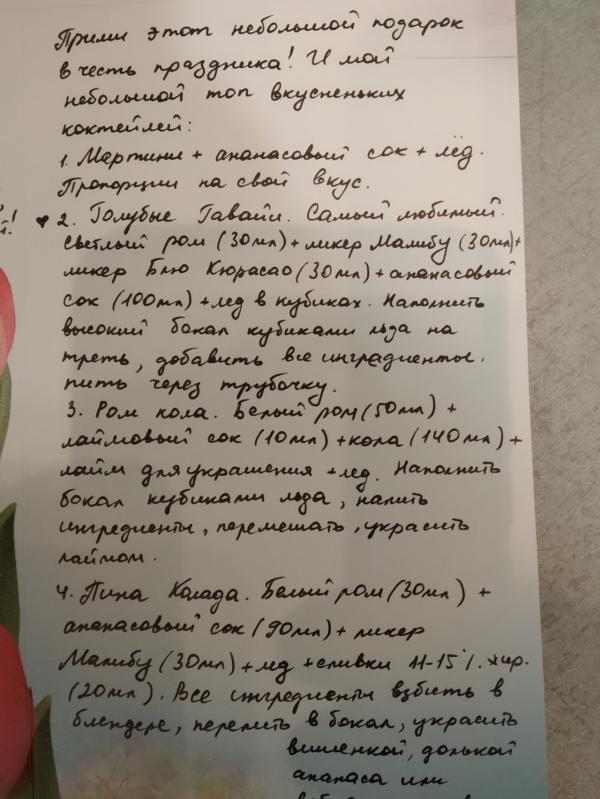 Прими этот небольшой подарок
в честь праздника! И мой
небольшой топ вкусненьких
коктейлей:
1. Мартини + ананасовый сок + лёд.
Пропорции на свой вкус.
♥ 2. Голубые Гавайи. Самый любимый.
Светлый ром (30мл) + ликер Малибу (30мл) +
ликер Блю Кюрасао (30мл) + ананасовый
сок (100мл) + лед в кубиках. Наполнить
высокий бокал кубиками льда на
треть, добавить все ингредиенты.
пить через трубочку.
3. Ром кола. Белый ром (50мл) +
лаймовый сок (10мл) + кола (140мл) +
лайм для украшения + лед. Наполнить
бокал кубиками льда, налить
ингредиенты, перемешать, украсить
лаймом.
4. Пина Колада. Белый ром (30мл) +
ананасовый сок (90мл) + ликер
Малибу (30мл) + лед + сливки 11-15%. жир.
(20мл). Все ингредиенты взбить в
блендере, перелить в бокал, украсить
вишенкой, долькой
ананаса или